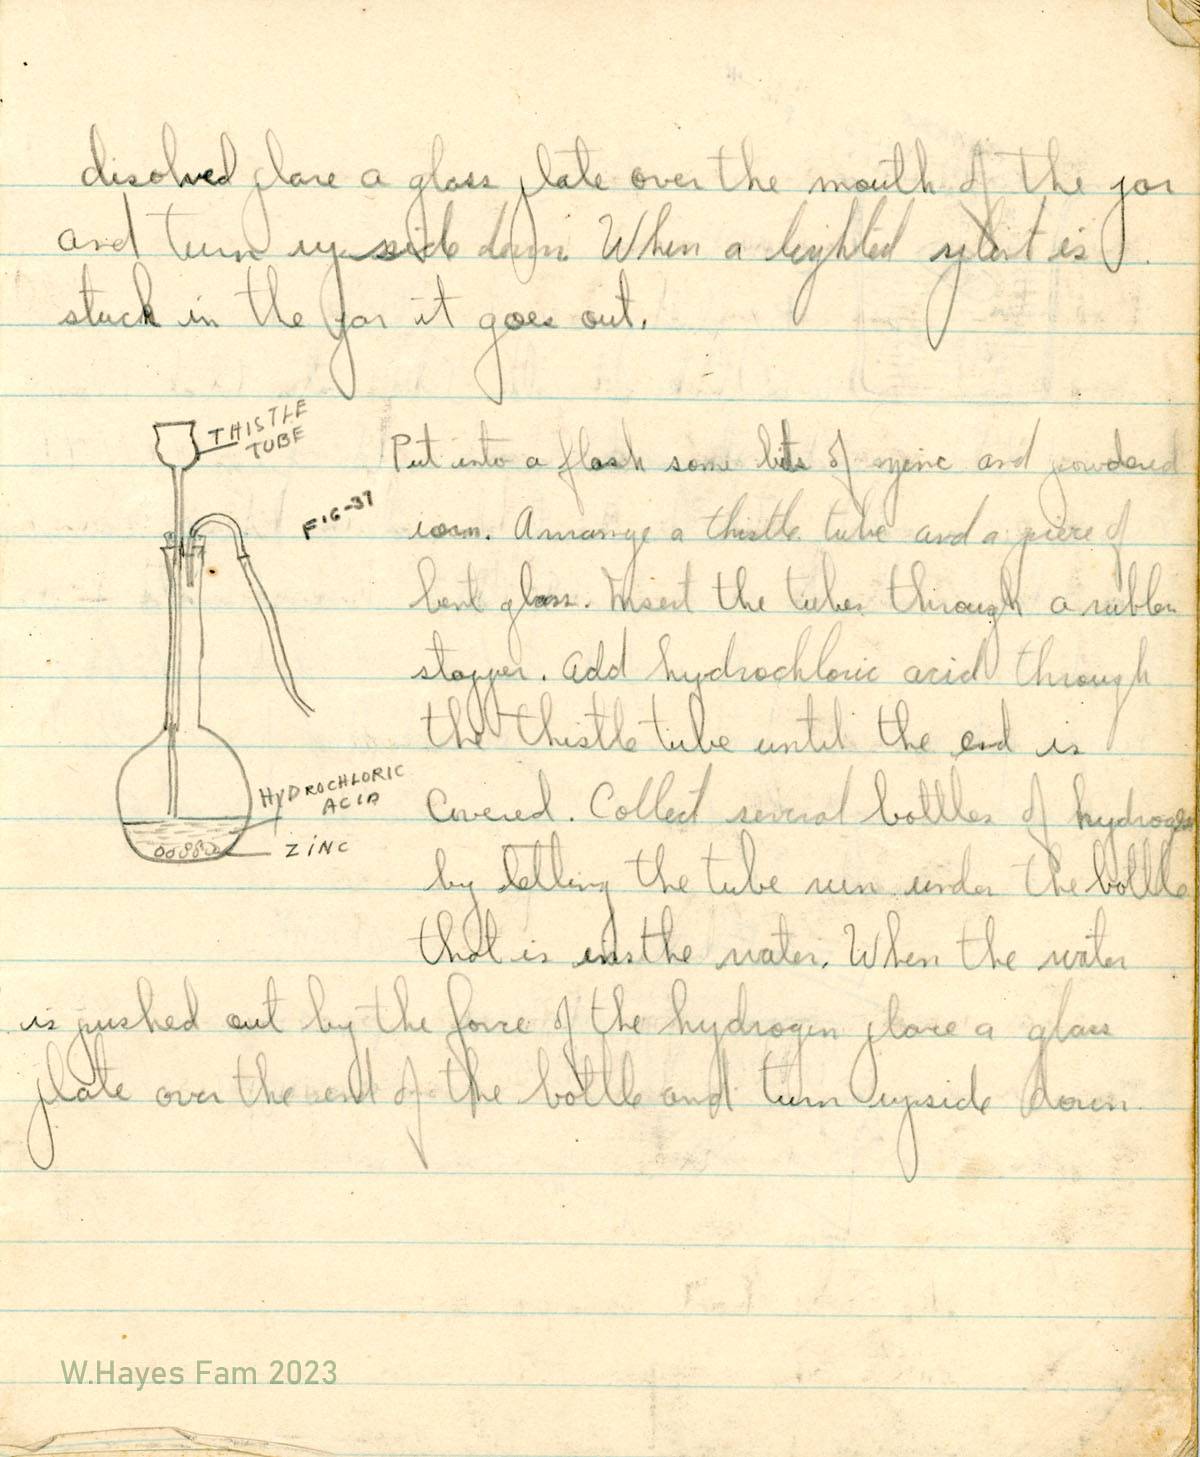 disolved place a glass plate over the mouth of the jar
and turn up side down. When a lighted splint is
stuck in the jar it goes out.
THISTLE
TUBE
FIG-37
Put into a flask some bits of zinc and powdered
iorn. Arrange a thistle tube and a piece of
bent glass. Insert the tubes through a rubber
stopper. Add hydrochloric acid through
the thistle tube until the end is
Covered. Collect several bottles of hydrogen
by letting the tube run under the bottle
that is in the water. When the water
is pushed out by the force of the hydrogen place a glass
plate over the end of the bottle and turn upside down.
HYDROCHLORIC
ACID
ZINC
W.Hayes Fam 2023